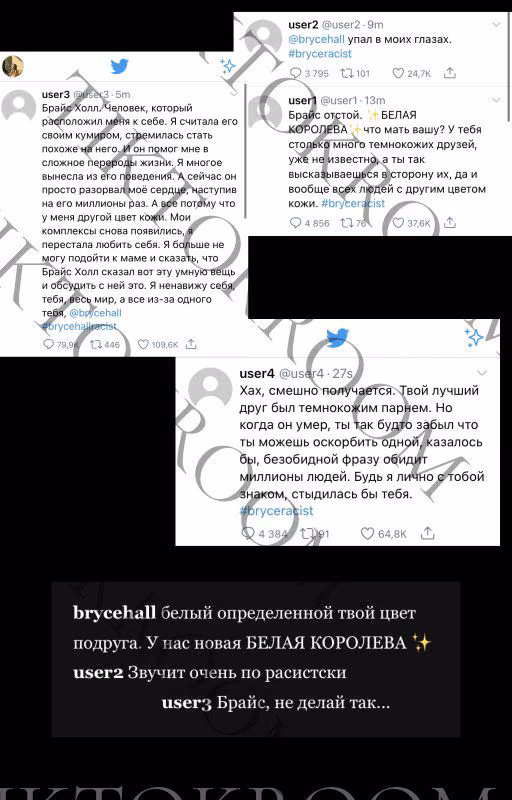 user2 @user2 · 9m
@brycehall упал в моих глазах.
#bryceracist
3 795 101 24,7K
user3 @user3 · 5m
Брайс Холл. Человек, который
расположил меня к себе. Я считала его
своим кумиром, стремилась стать
похоже на него. И он помог мне в
сложное перероды жизни. Я многое
вынесла из его поведения. А сейчас он
просто разорвал моё сердце, наступив
на его миллионы раз. А все потому что
у меня другой цвет кожи. Мои
комплексы снова появились, я
перестала любить себя. Я больше не
могу подойти к маме и сказать, что
Брайс Холл сказал вот эту умную вещь
и обсудить с ней это. Я ненавижу себя,
тебя, весь мир, а все из-за одного
тебя, @brycehall
#brycehallracist
79,9K 446 109,6K
user1 @user1 · 13m
Брайс отстой. ✨БЕЛАЯ
КОРОЛЕВА✨ что мать вашу? У тебя
столько много темнокожих друзей,
уже не известно, а ты так
высказываешься в сторону их, да и
вообще всех людей с другим цветом
кожи. #bryceracist
4 856 76 37,6K
user4 @user4 · 27s
Хах, смешно получается. Твой лучший
друг был темнокожим парнем. Но
когда он умер, ты так будто забыл что
ты можешь оскорбить одной, казалось
бы, безобидной фразу обидит
миллионы людей. Будь я лично с тобой
знаком, стыдилась бы тебя.
#bryceracist
4 384 91 64,8K
brycehall белый определенной твой цвет
подруга. У нас новая БЕЛАЯ КОРОЛЕВА ✨
user2 Звучит очень по расистски
user3 Брайс, не делай так...
TIKTOKROOM